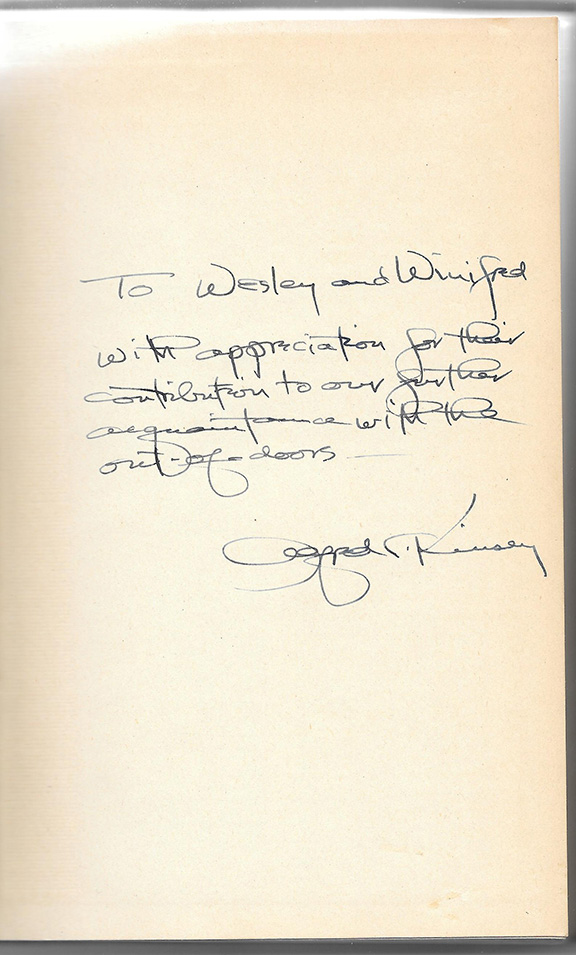 To Wesley and Winifred
with appreciation for their
contribution to our further
acquaintance with the
out-of-doors —
Alfred C. Kinsey